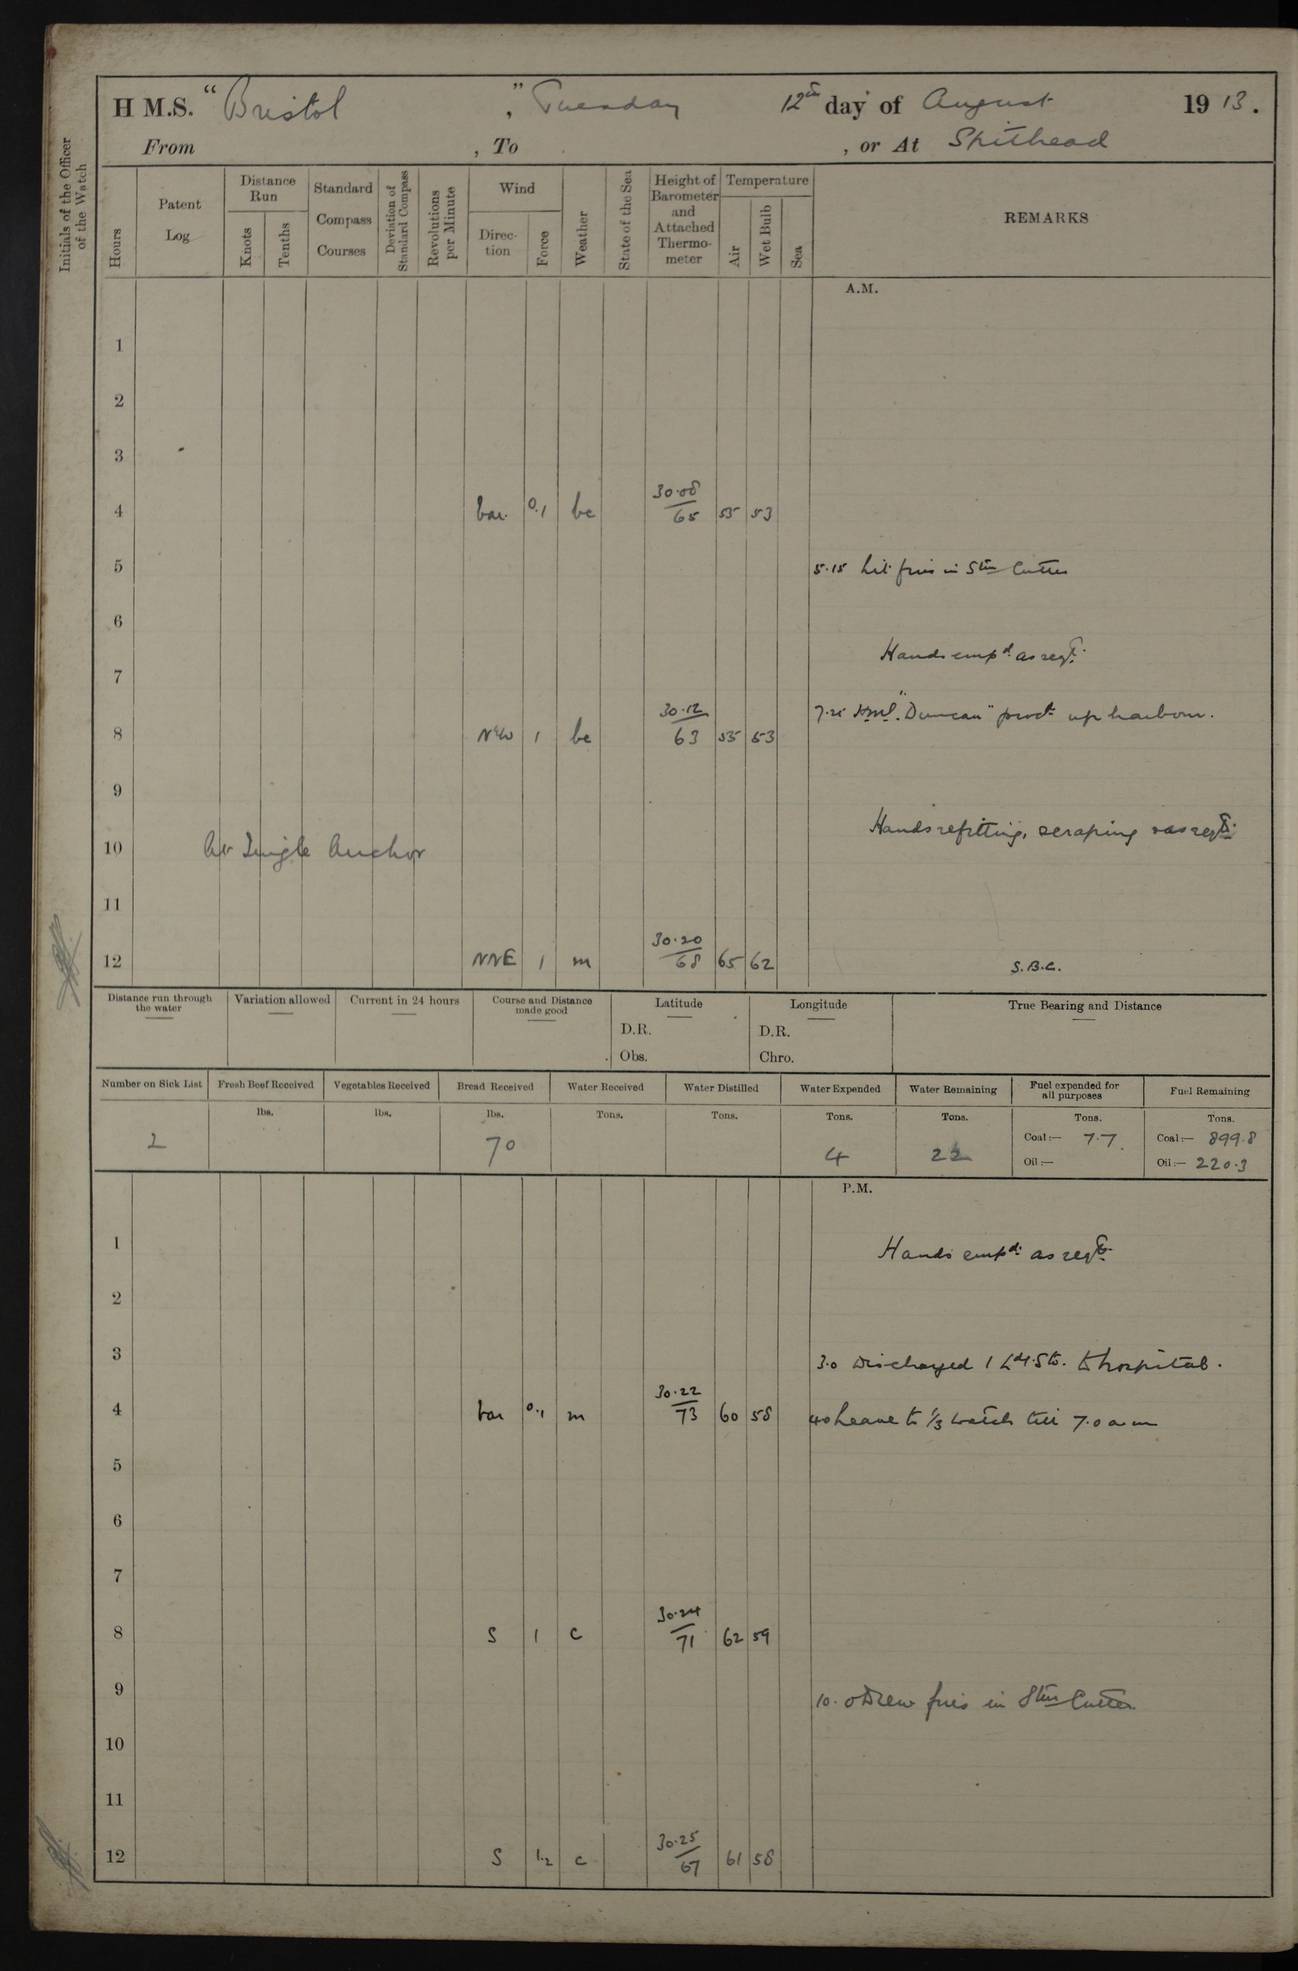 H.M.S. " Bristol ", Tuesday 12th day of August 1913.
From , To , or At Spithead
Initials of the Officer of the Watch
Hours
Patent Log
Distance Run
Knots
Tenths
Standard Compass Courses
Deviation of Standard Compass
Revolutions per Minute
Wind
Direction
Force
Weather
State of the Sea
Height of Barometer and Attached Thermometer
Temperature
Air
Wet Bulb
Sea
REMARKS
A.M.
1
2
3
4 var. 0.1 bc 30.08/65 55 53
5 5.15 Lit fires in Stm Cutter
6
Hands empd. as reqt.
7
7.25 HMS. "Duncan" procd. up harbour.
8 NW 1 bc 30.12/63 55 53
9
Hands refitting, scraping & as reqt.
10 At Single Anchor
11
12 NNE 1 m 30.20/68 65 62 S.B.C.
Distance run through the water
Variation allowed
Current in 24 hours
Course and Distance made good
Latitude
D.R.
Obs.
Longitude
D.R.
Chro.
True Bearing and Distance
Number on Sick List
Fresh Beef Received
Vegetables Received
Bread Received
Water Received
Water Distilled
Water Expended
Water Remaining
Fuel expended for all purposes
Fuel Remaining
lbs. lbs. lbs. Tons. Tons. Tons. Tons. Tons. Tons.
2 70 4 22 Coal:— 7.7 Coal:— 899.8
Oil:— Oil:— 220.3
P.M.
1 Hands empd. as reqt.
2
3 3.0 Discharged 1 Ld. Sto. to hospital.
4 var 0.1 m 30.22/73 60 58 4.0 Leave to 1/3 watch till 7.0 am
5
6
7
8 S 1 c 30.24/71 62 59
9 10.0 Drew fires in Stm Cutter
10
11
12 S 1.2 c 30.25/67 61 58